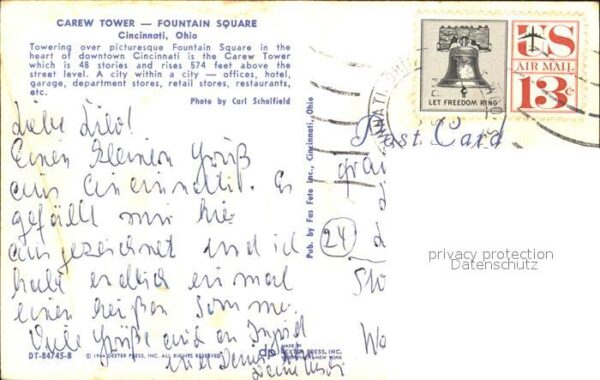 CAREW TOWER — FOUNTAIN SQUARE
Cincinnati, Ohio
Towering over picturesque Fountain Square in the
heart of downtown Cincinnati is the Carew Tower
which is 48 stories and rises 574 feet above the
street level. A city within a city — offices, hotel,
garage, department stores, retail stores, restaurants,
etc.
Photo by Carl Scholfield
Einen kleinen Gruß
aus Cincinnati. Es
gefällt mir hie
ausgezeichnet und ich
habe endlich einmal
einen heißen Somme
Viele Grüße auch an Ingrid
DT-84745-B
DEXTER PRESS, INC. ALL RIGHTS RESERVED
MADE BY
DEXTER PRESS, INC.
WEST NYACK, NEW YORK
Pub. by Fas Foto Inc., Cincinnati, Ohio
24
Post Card
LET FREEDOM RING
US
AIR MAIL
13c
privacy protection
Datenschutz